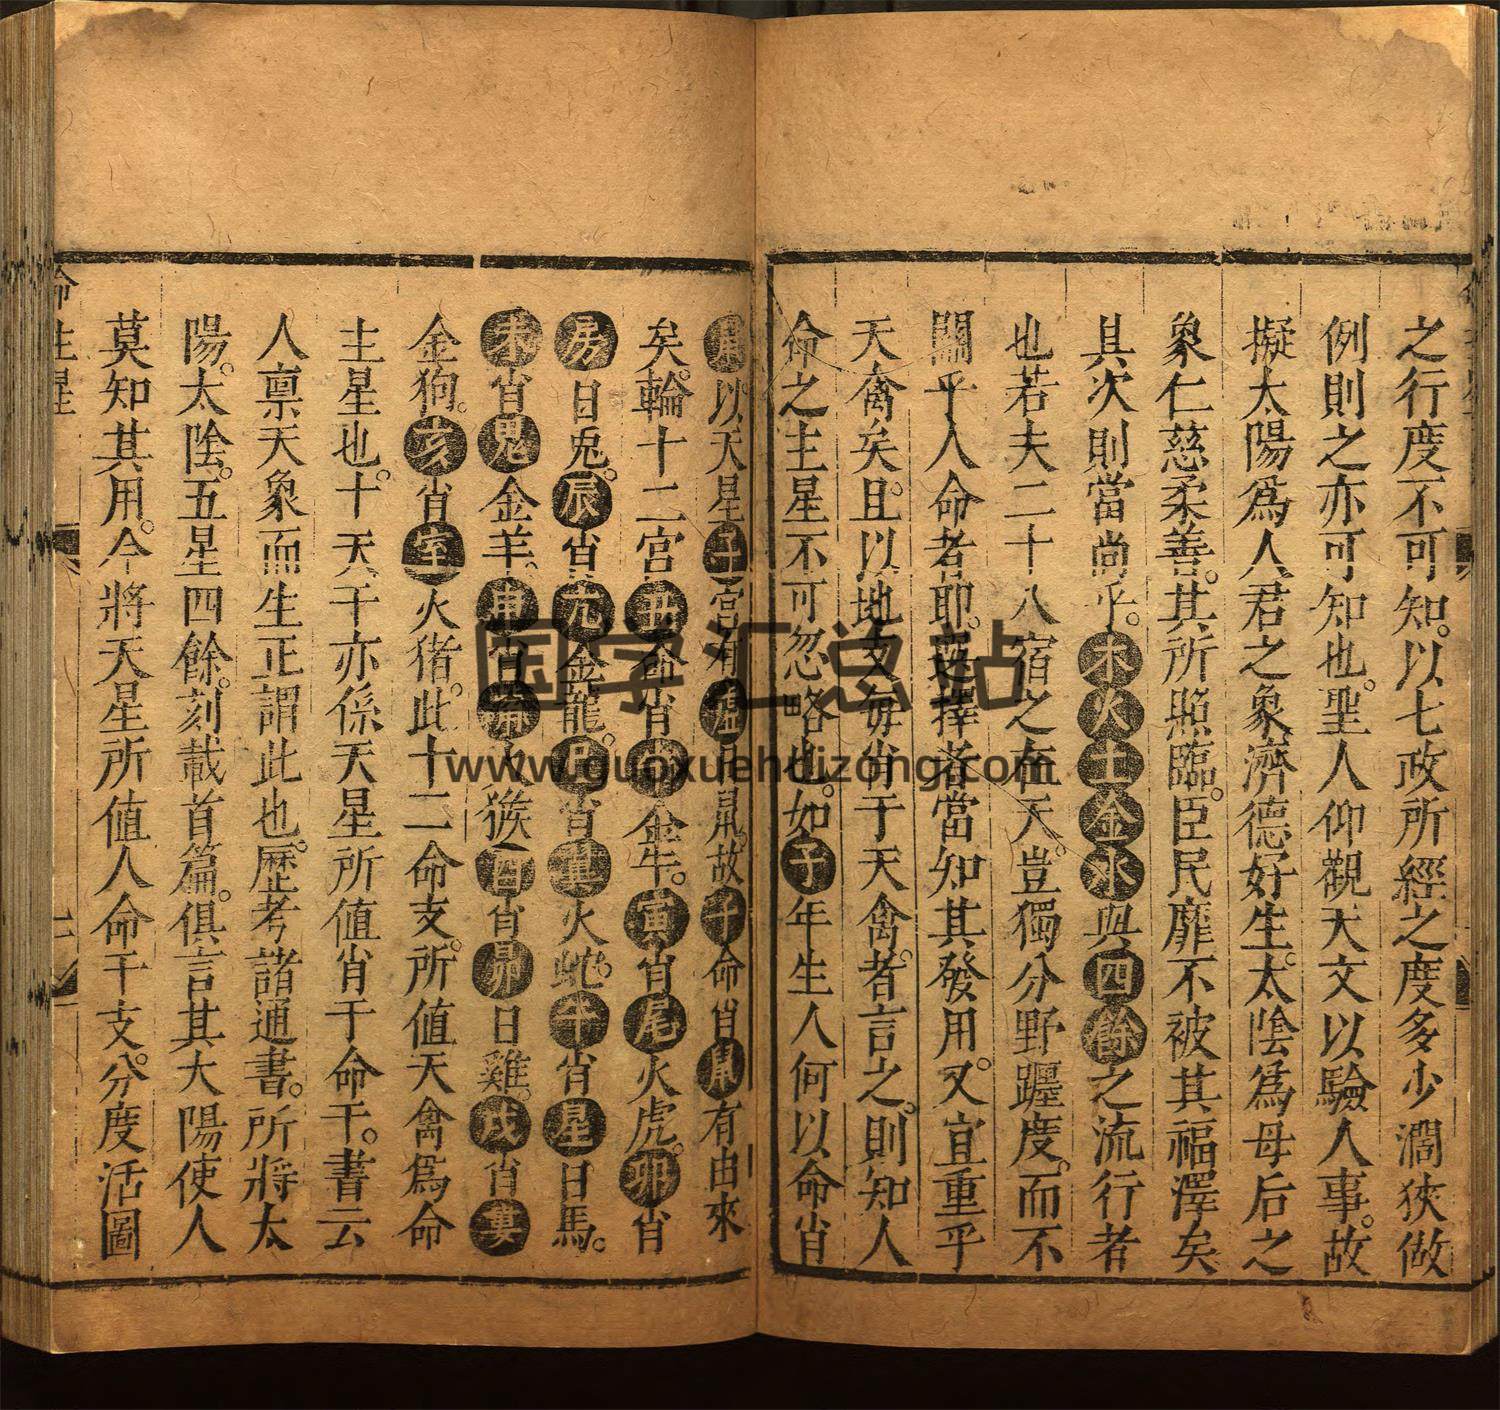 之行度不可知以七政所經之度多少濶狹做
例則之亦可知也聖人仰觀天文以驗人事故
擬太陽爲人君之象濟德好生太陰爲母后之
象仁慈柔善其所照臨臣民靡不被其福澤矣
其次則當尚乎木火土金水與四餘之流行者
也若夫二十八宿之在天豈獨分野躔度而不
關乎人命者耶選擇者當知其發用又宜重乎
天禽矣且以地支每肖于天禽者言之則知人
命之主星不可忽略也如子年生人何以命肖
鼠以天星子宮有虛日鼠故子命肖鼠有由來
矣輪十二宮丑命肖牛金牛寅肖尾火虎卯肖
房日兎辰肖亢金龍巳肖翼火蛇午肖星日馬
未肖鬼金羊申肖觜火猴酉肖昴日雞戌肖婁
金狗亥肖室火猪此十二命支所值天禽爲命
主星也十天干亦係天星所值肖于命干書云
人禀天象而生正謂此也歷考諸通書所將太
陽太陰五星四餘刻載首篇俱言其大陽使人
莫知其用今將天星所值人命干支分度活圖
命主星
国学汇总站
www.guoxuehuizong.com